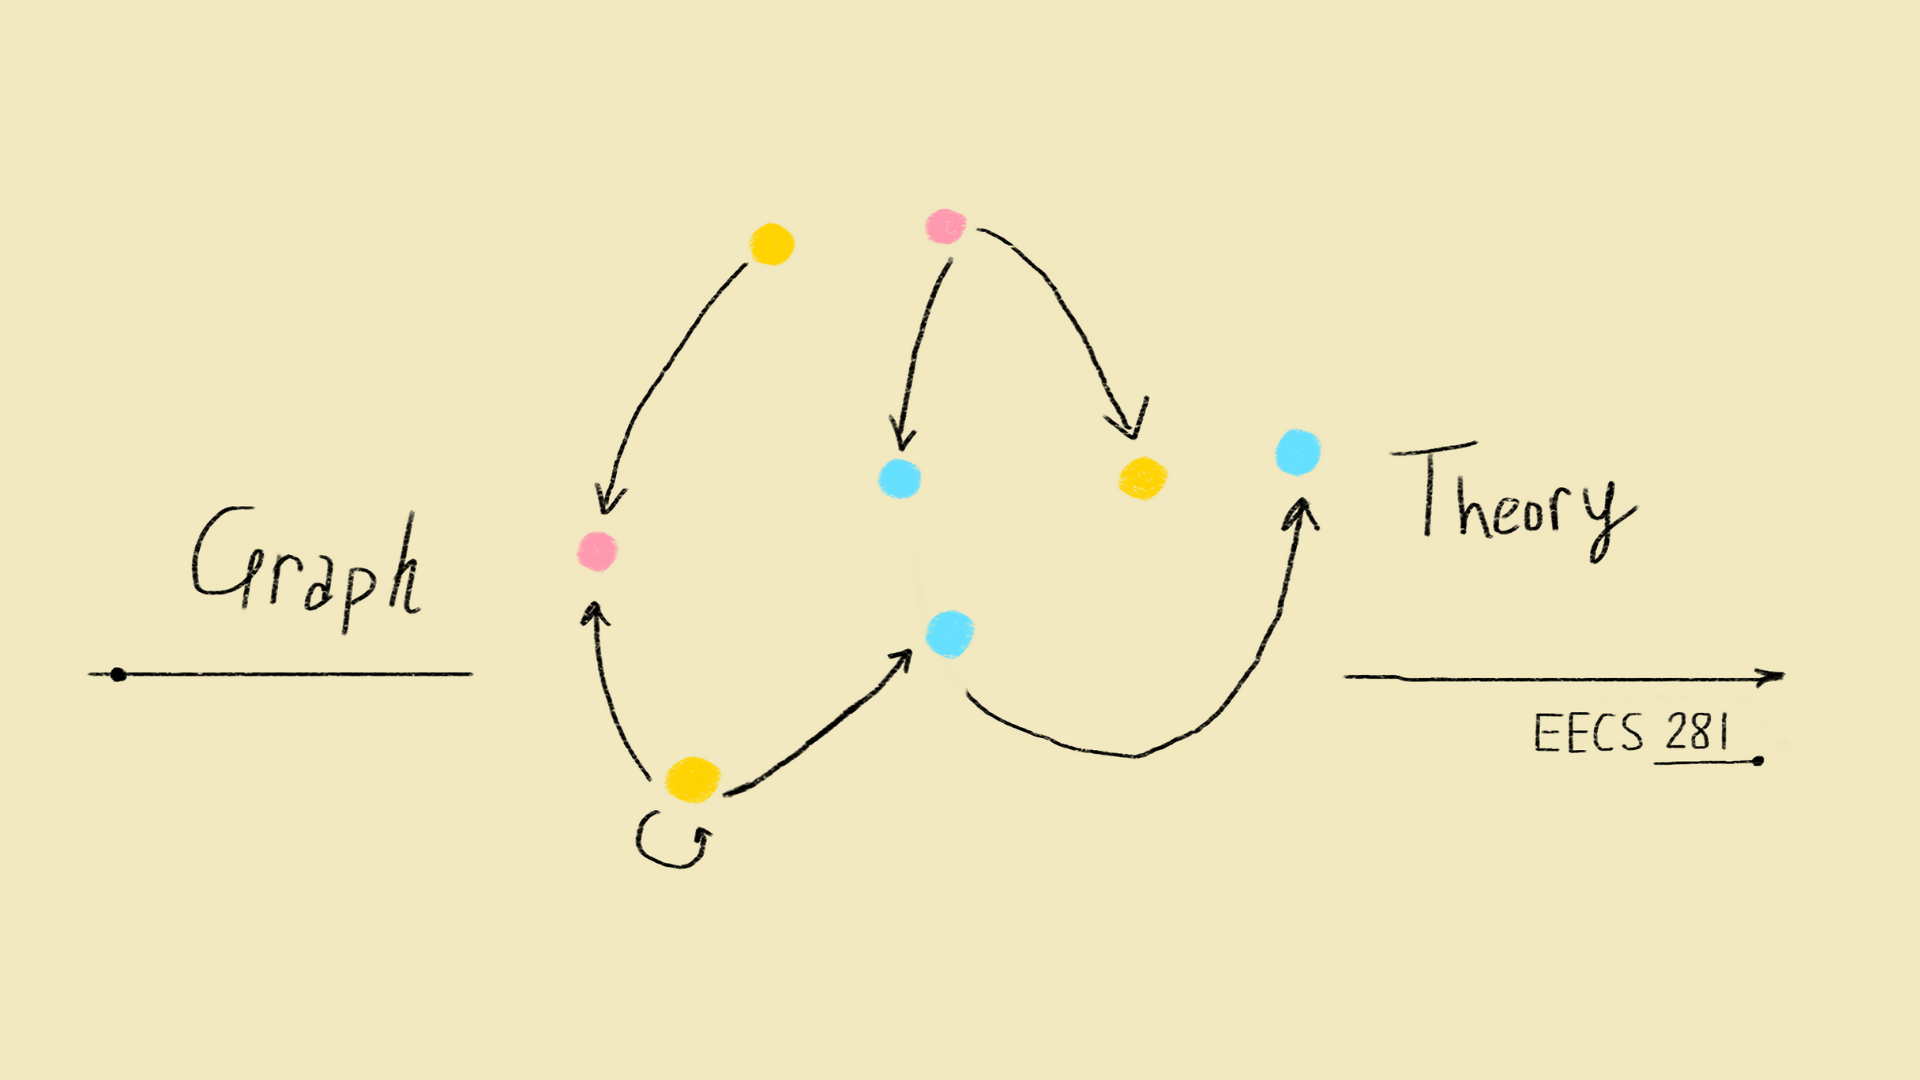 Graph
Theory
EECS 281